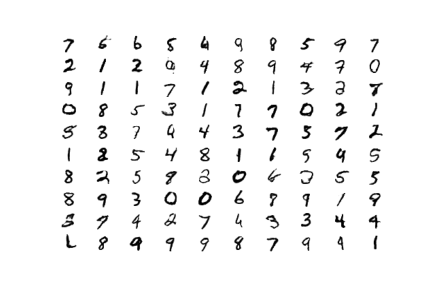 7 6 6 5 4 9 8 5 9 7
2 1 2 0 4 8 9 4 7 0
9 1 1 7 1 2 1 3 2 8
0 8 5 3 1 7 7 0 2 1
5 3 7 4 4 3 7 5 7 2
1 2 5 4 8 1 1 5 9 5
8 2 5 9 2 0 6 3 5 5
8 9 3 0 0 6 8 9 1 9
5 7 4 2 7 4 3 3 4 4
1 8 9 9 9 8 7 9 9 1